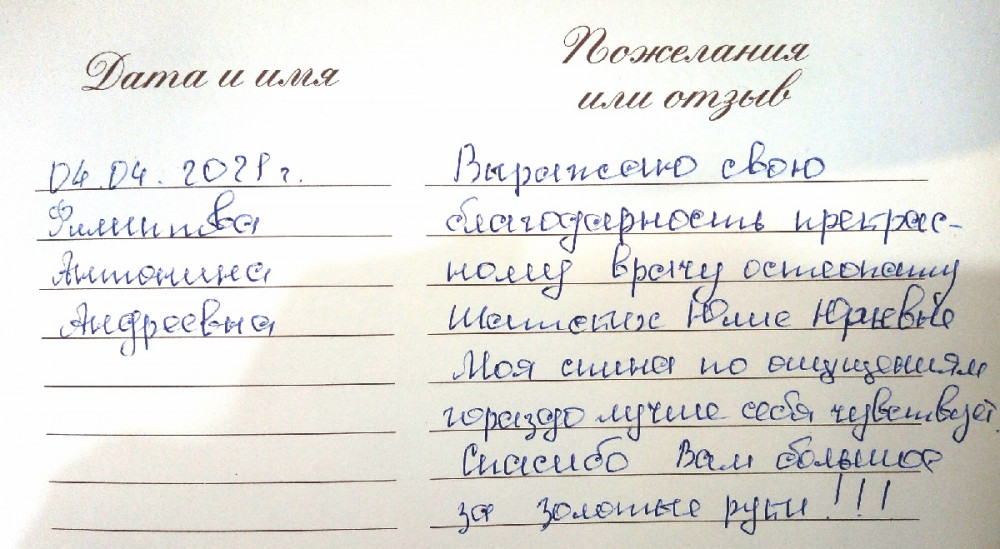 Дата и имя
Пожелания
или отзыв
04.04.2021 г.
Филиппова
Антонина
Андреевна
Выражаю свою
благодарность прекрас-
ному врачу остеопату
Юлие Юрьевне
Моя спина по ощущениям
гораздо лучше себя чувствует.
Спасибо Вам большое
за золотые руки!!!